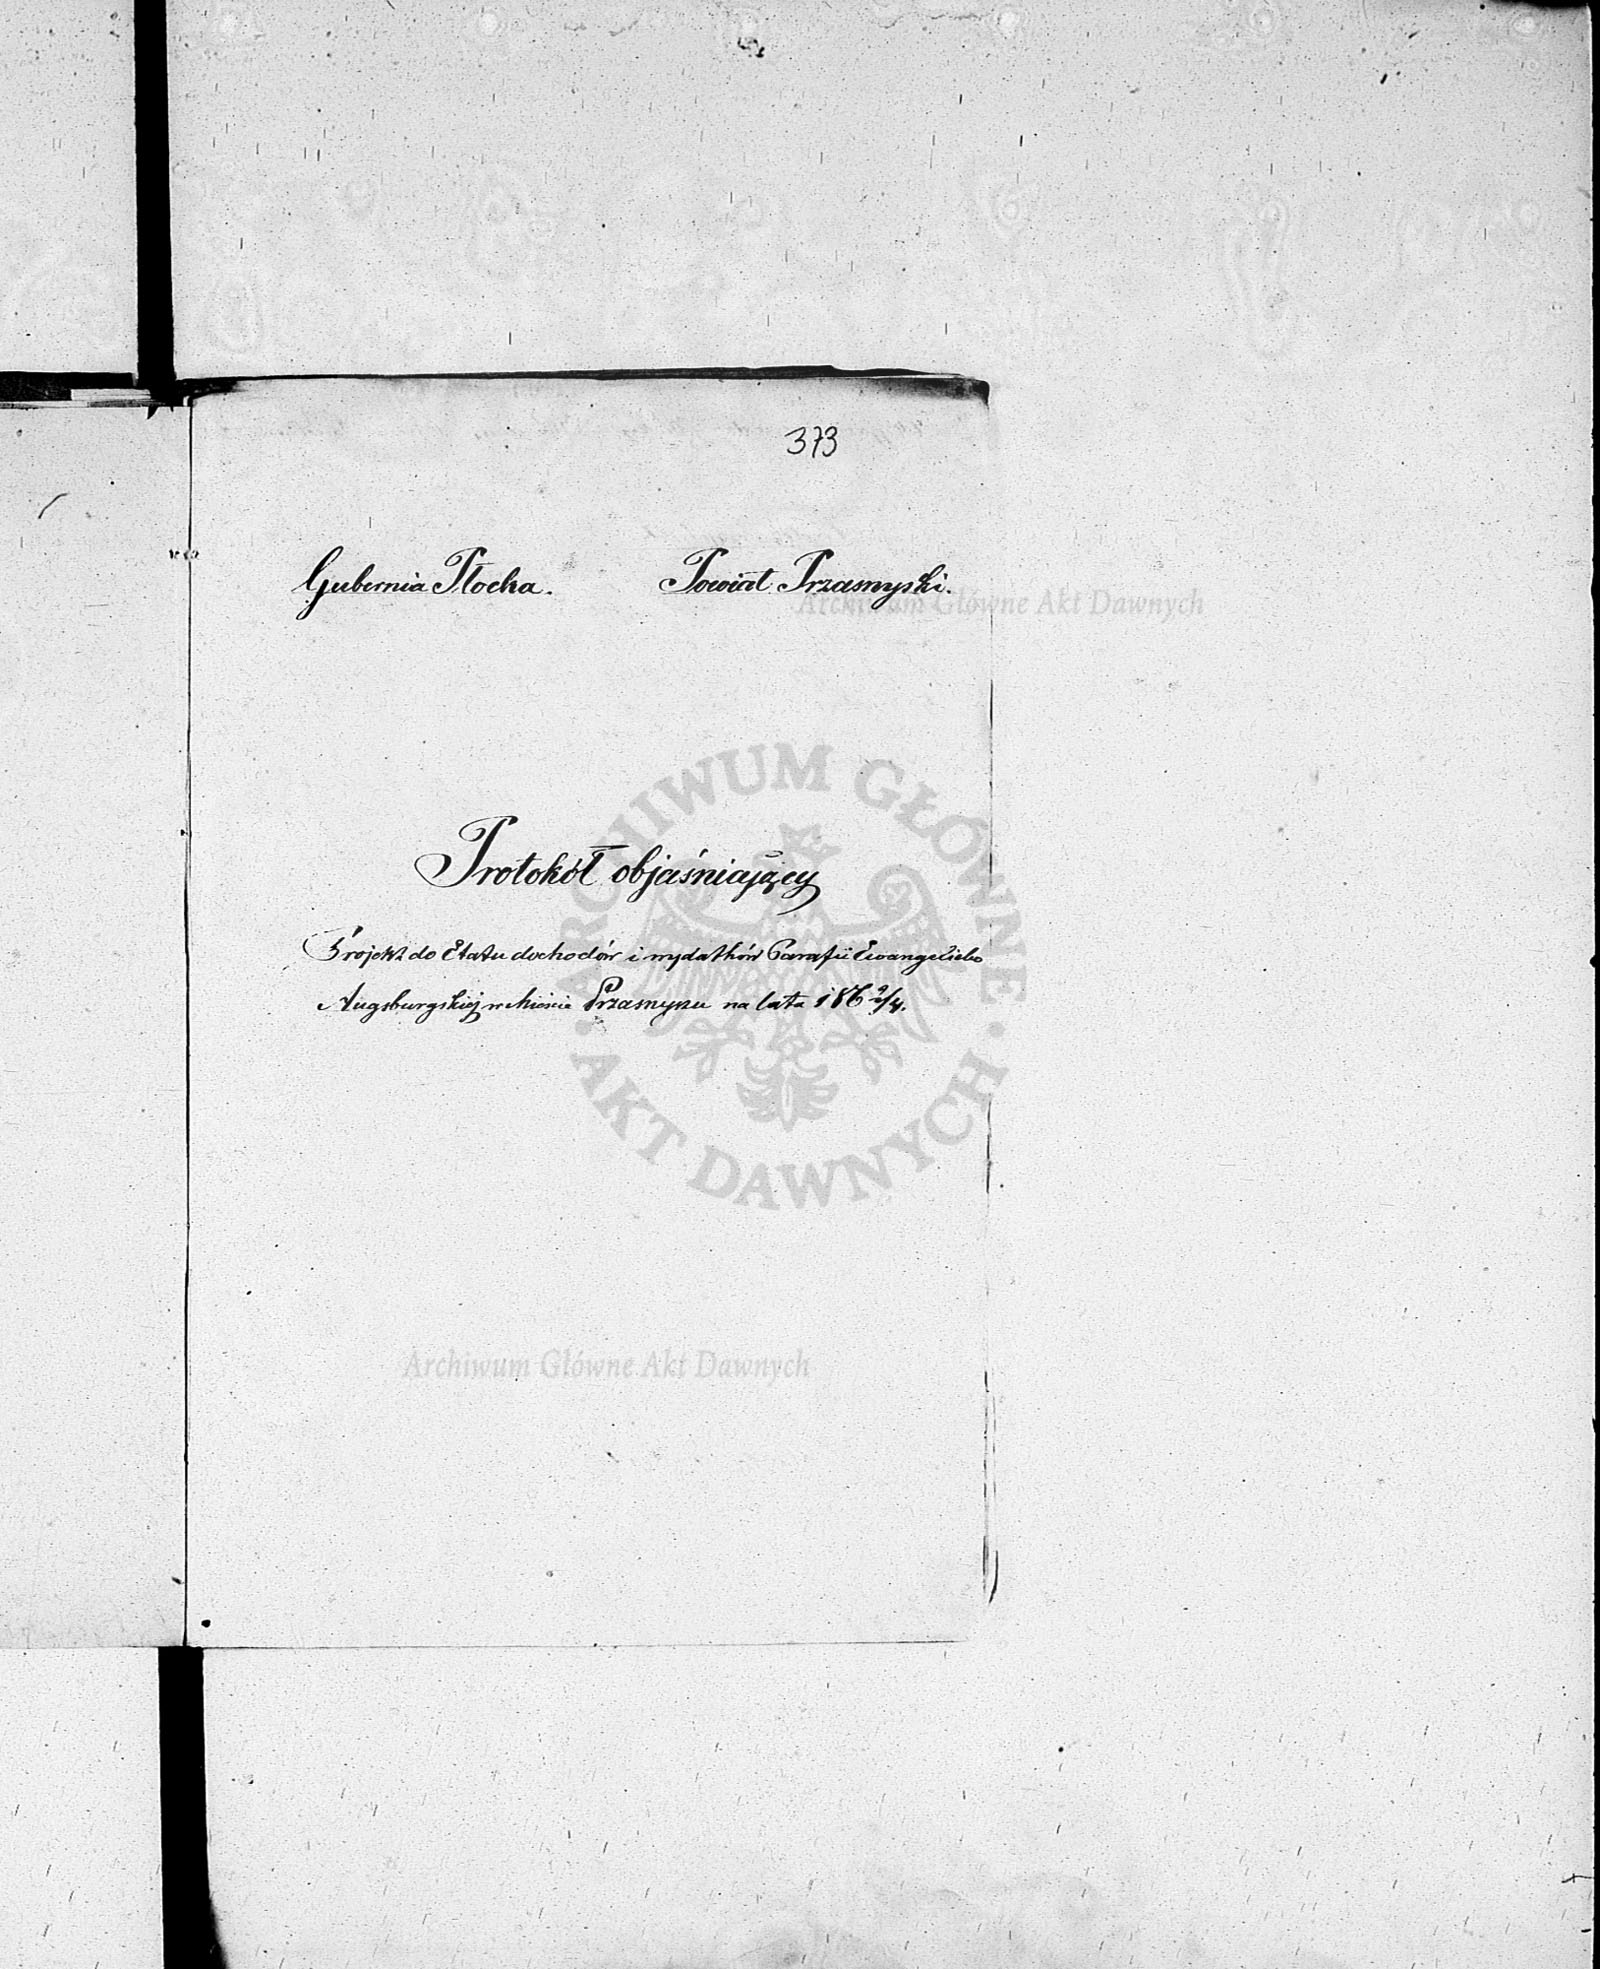 373
Gubernia Płocka. Powiat Przasnyski.
Archiwum Główne Akt Dawnych
Protokół objaśniający
Projekt do Etatu dochodów i wydatków Parafii Ewangelicko
Augsburgskiej w Mieście Przasnyszu na lata 186 2/4.
ARCHIWUM GŁÓWNE
AKT DAWNYCH
Archiwum Główne Akt Dawnych